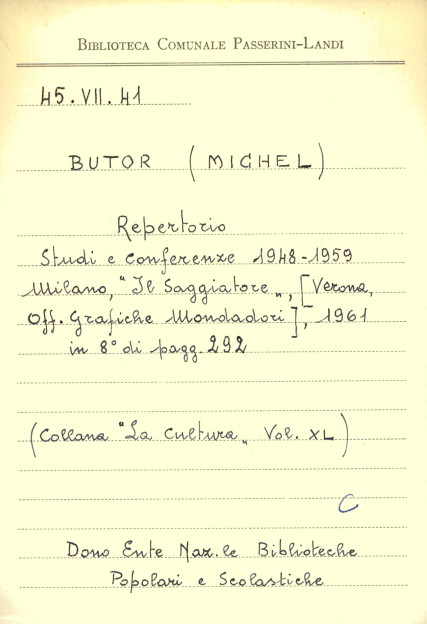 BIBLIOTECA COMUNALE PASSERINI-LANDI
45.VII.41
BUTOR (MICHEL)
Repertorio
Studi e Conferenze 1948-1959
Milano, "Il Saggiatore", [Verona,
Off. Grafiche Mondadori], 1961
in 8° di pagg. 292
(Collana "La Cultura" Vol. XL)
C
Dono Ente Naz.le Biblioteche
Popolari e Scolastiche